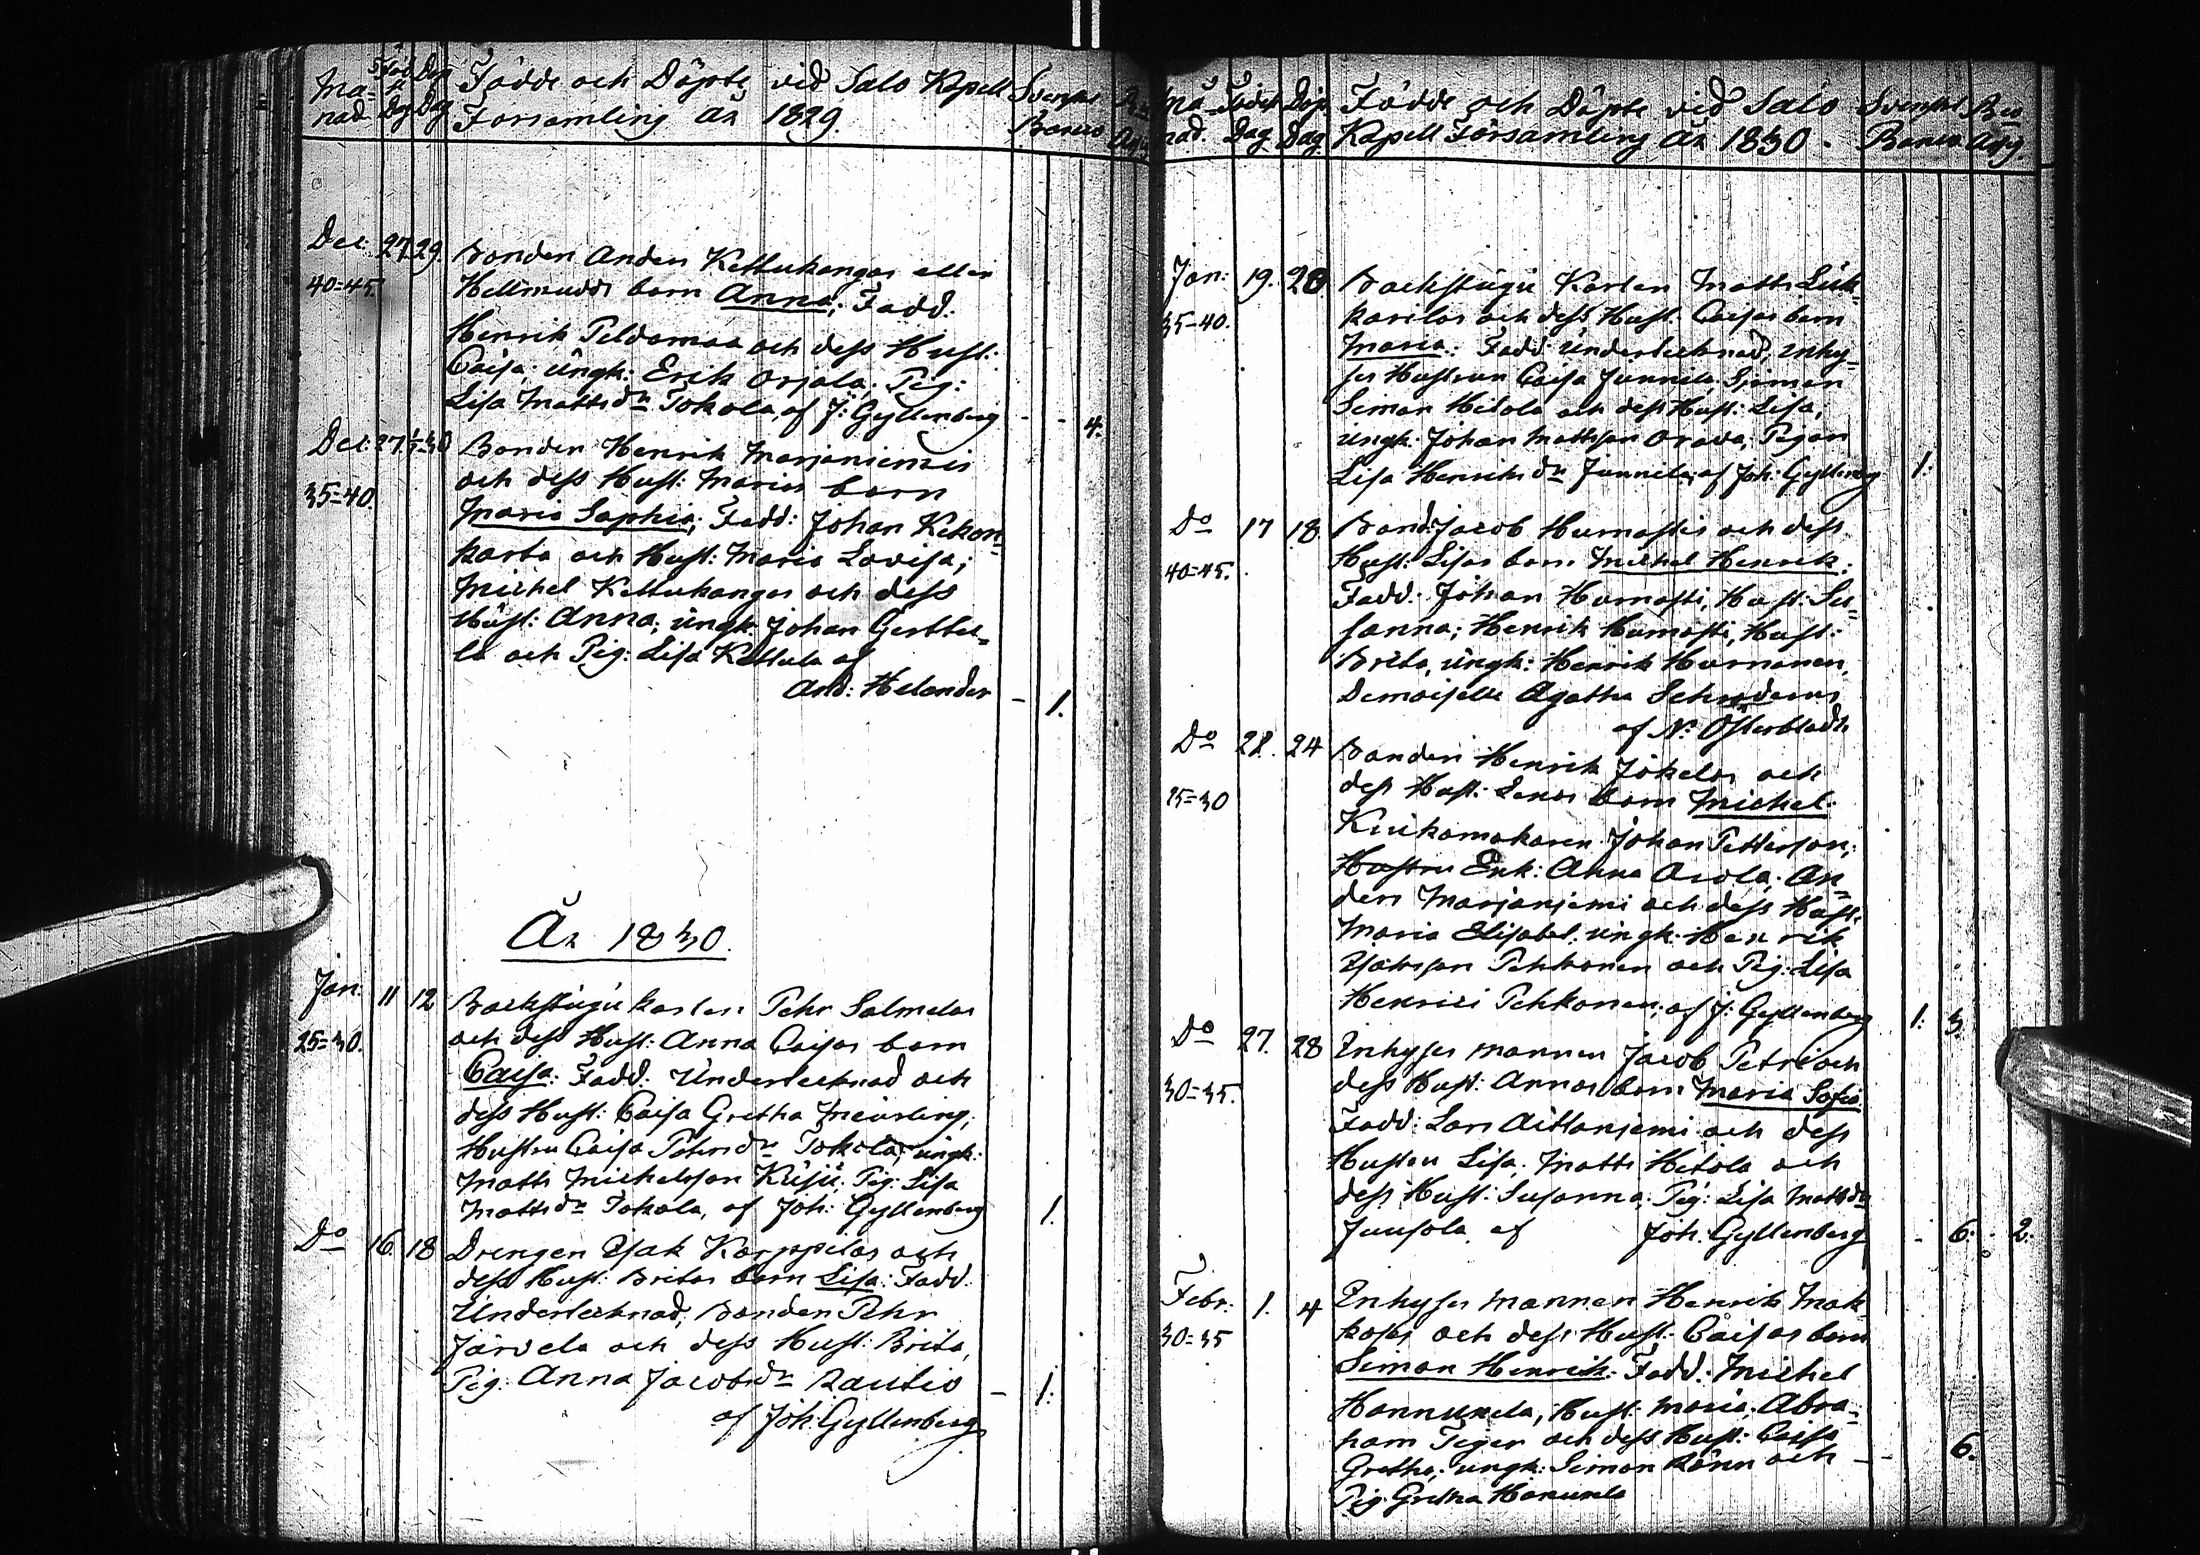 Må- Föd. Döp Födde och Döpte vid Salo Kapell Svenska
nad Dag Dag Församling År 1829. Banco
Dec: 27 29 Bonden Anders Kettukangas eller
40=45. Hellmudds barn Anna; Fadd.
Henrik Peldomaa och dess Hust:
Caisa; üngk: Erik Orjala; Pig:
Lisa Mattsdr Tokola, af J: Gyllenberg - - 4.
Dec: 27 30 Bonden Henrik Marjaniemis
35=40. och dess Hust: Marias barn
Maria Sophia; Fadd: Johan Kekon-
karta och Hust: Maria Lovisa;
Michel Kettukangas och dess
Hüst: Anna; üngk: Johan Gertte-
la och Pig: Lisa Kettula af
And: Helander - 1.
År 1830.
Jan. 11 12 Backstügü karlen Pehr Salmelas
25=30. och dess Hust: Anna Caisas barn
Caisa: Fadd: Undertecknad och
dess Hust: Caisa Gretha Meürling;
Hustru Caisa Pehrsdr Tokola, üngk:
Matts Michelsson Küjü; Pig: Lisa
Mattsdr Tokola, af Joh: Gyllenberg 1.
Do 16 18 Drengen Isak Karppilas och
dess Hust: Britas barn Lisa: Fadd:
Undertecknad, Bonden Pehr
Järvela och dess Hust: Brita,
Pig: Anna Jacobsdr Rautio - 1.
af Joh: Gyllenberg
Må- Födes Döp Födde och Döpte vid Salo Svenska Rec
nad. Dag Dag Kapell Församling År 1830. Banco. Agg.
Jan: 19. 20. Backstügü Karlen Matts Luk-
35-40. karilas och dess Hust: Caisas barn
Maria: Fadd: Undertecknad, Inhy-
ses Hustrun Caisa Junnila,
Simon Hitola och dess Hust: Lisa;
üngk: Johan Mattsson Orava; Pigan
Lisa Henriksdr Junnila, af Joh: Gyllenberg 1:
Do 17 18 Bond: Jacob Humastis och dess
40=45. Hust: Lisas barn Michel Henrik:
Fadd: Johan Humasti, Hust: Su-
sanna; Henrik Humasti, Hust:
Brita, üngk: Henrik Hurnanen,
Demoiselle Agatha
af N: Österbladh
Do 22. 24 Bonden Henrik Jokelas och
25=30 dess Hust: Lenas barn Michel:
Krukomakaren Johan Pettersson;
Hustru Enk: Anna Arola; An-
ders Marjaniemi och dess Hust:
Maria Elisabet; üngk: Henrik
Isaksson Pehkonen och Pig: Lisa
Henrici Pehkonen; af J: Gyllenberg 1: 3.
Do 27. 28 Inhyses mannen Jacob Petri och
30=35. dess Hust: Annas barn Maria Sofia
Fadd: Lars Aittaniemi och dess
Hustru Lisa; Matts Hitola och
dess Hust: Susanna; Pig: Lisa Mattsdr
Juusola, af Joh: Gyllenberg - 6. 2.
Febr: 1. 4 Inhyses mannen Henrik Mak-
30=35 kojas och dess Hust: Caisas barn
Simon Henrik: Fadd: Michel
Hannuxela, Hust: Maria; Abra-
ham Teger och dess Hust: Caisa
Gretha; üngk: Simon Rönn och -- 6.
Pig: Gretha